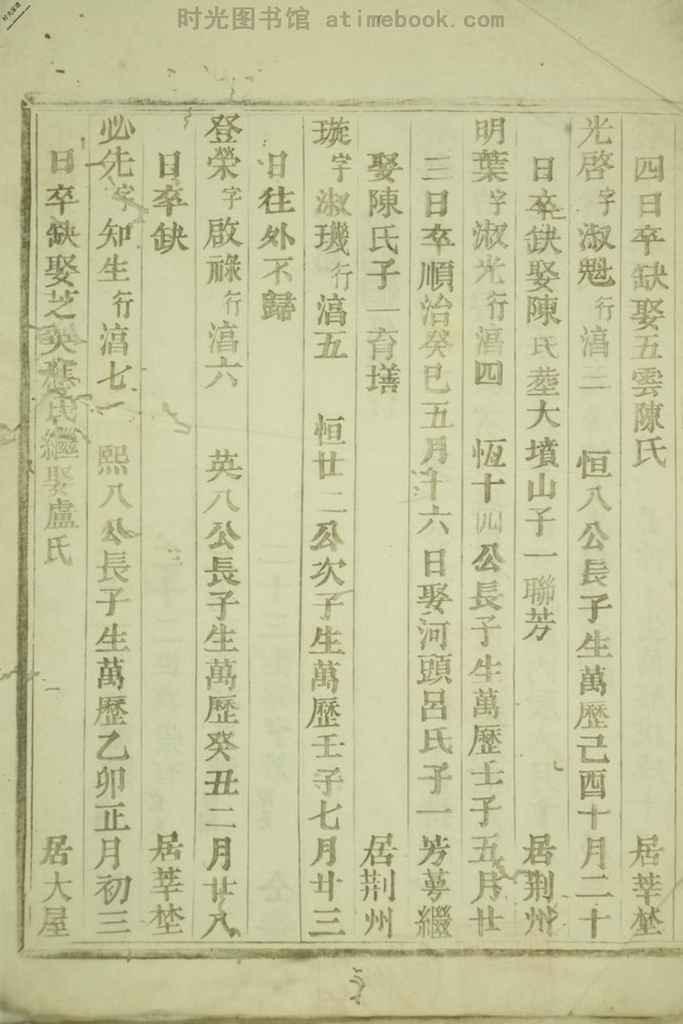 时光图书馆 atimebook.com
四日卒缺娶五雲陳氏 居莘塍
光啓字淑魁行漓三 恒八公長子生萬歷己酉十月二十
日卒缺娶陳氏葬大墳山子一聯芳 居荆州
明葉字淑光行漓四 恆十四公長子生萬歷壬子五月廿
三日卒順治癸巳五月十六日娶河頭呂氏子一芳萼繼
娶陳氏子一育墡 居荆州
璇字淑璣行漓五 恒廿二公次子生萬歷壬子七月廿三
日往外不歸
登榮字啟祿行漓六 英八公長子生萬歷癸丑二月廿八
日卒缺 居莘塍
必先字知生行漓七一 熙八公長子生萬歷乙卯正月初三
日卒缺娶芝英應氏繼娶盧氏 居大屋